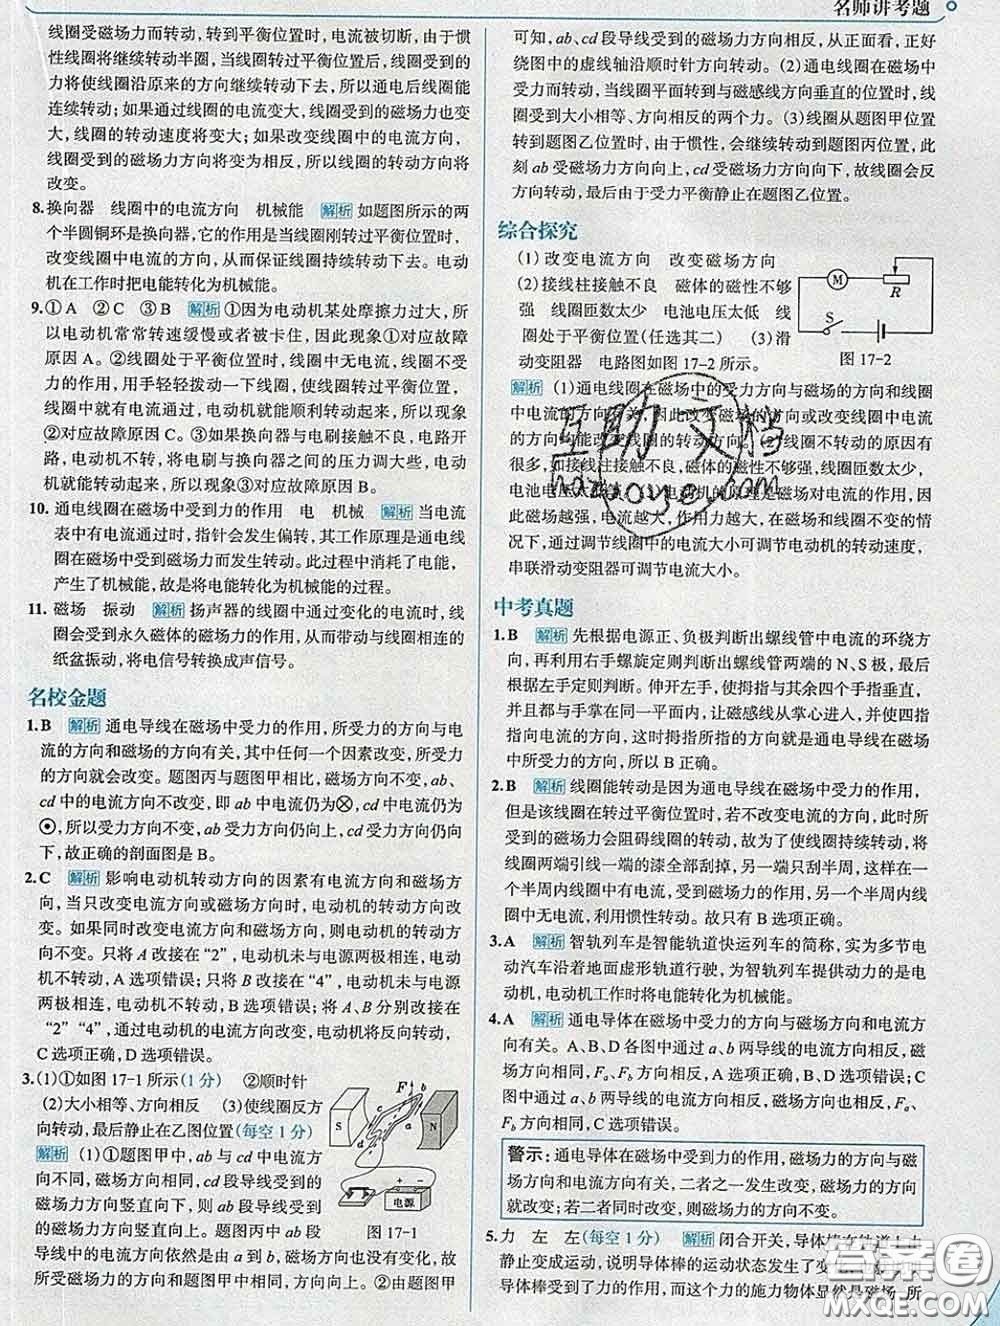 名师讲考题
线圈受磁场力而转动，转到平衡位置时，电流被切断，由于惯
性线圈将继续转动半圈，当线圈转过平衡位置后，线圈受到的
力将使线圈沿原来的方向继续转动下去，所以通电后线圈能
连续转动；如果通过线圈的电流变大，线圈受到的磁场力也变
大，线圈的转动速度将变大；如果改变线圈中的电流方向，
线圈受到的磁场力方向将变为相反，所以线圈的转动方向将
改变。
8.换向器 线圈中的电流方向 机械能 解析 如题图所示的两
个半圆铜环是换向器，它的作用是当线圈刚转过平衡位置时，
改变线圈中电流的方向，从而保证线圈持续转动下去。电动
机在工作时把电能转化为机械能。
9.①A ②C ③B 解析 ①因为电动机某处摩擦力过大，所
以电动机常常转速缓慢或者被卡住，因此现象①对应故障
原因 A。②线圈处于平衡位置时，线圈中无电流，线圈不受
力的作用，用手轻轻拨动一下线圈，使线圈转过平衡位置，
线圈中就有电流通过，电动机就能顺利转动起来，所以现象
②对应故障原因 C。③如果换向器与电刷接触不良，电路开
路，电动机不转，将电刷与换向器之间的压力调大些，电动机
就能转动起来，所以现象③对应故障原因 B。
10.通电线圈在磁场中受到力的作用 电 机械 解析 当电流
表中有电流通过时，指针会发生偏转，其工作原理是通电线
圈在磁场中受到磁场力而发生转动。此过程中消耗了电能，
产生了机械能，故是将电能转化为机械能的过程。
11.磁场 振动 解析 扬声器的线圈中通过变化的电流时，线
圈会受到永久磁体的磁场力的作用，从而带动与线圈相连的
纸盆振动，将电信号转换成声信号。
名校金题
1.B 解析 通电导线在磁场中受力的作用，所受力的方向与电
流的方向和磁场的方向有关，其中任何一个因素改变，所受力
的方向就会改变。题图丙与题图甲相比，磁场方向不变，ab、
cd 中的电流方向不改变，即 ab 中电流仍为⊗，cd 中电流仍为
⊙，所以受力方向不变，ab 受力方向仍向上，cd 受力方向仍向
下，故正确的剖面图是 B。
2.C 解析 影响电动机转动方向的因素有电流方向和磁场方
向，当只改变电流方向或磁场方向时，电动机的转动方向改
变。如果同时改变电流方向和磁场方向，则电动机的转动方
向不变。只将 A 改接在“2”，电动机未与电源两极相连，电动
机不转动，A 选项错误；只将 B 改接在“4”，电动机未与电源
两极相连，电动机不转动，B 选项错误；将 A、B 分别改接在
“2”“4”，通过电动机的电流方向改变，电动机将反向转动，
C 选项正确，D 选项错误。
3.(1)①如图 17-1 所示(1 分) ②顺时针
(2)大小相等、方向相反 (3)使线圈反方
向转动，最后静止在乙图位置(每空 1 分)
解析 (1)①题图甲中，ab 与 cd 中电流
方向不同，磁场方向相同，cd 段导线受到
的磁场力方向竖直向下，则 ab 段导线受到
的磁场力方向竖直向上。题图丙中 ab 段
导线中的电流方向依然是由 a 到 b，磁场方向也没有变化，故
所受磁场力的方向还与题图甲中相同，竖直向上。②由题图甲
S
N
F
a
b
c
d
电源
图 17-1
可知，ab、cd 段导线受到的磁场力方向相反，从正面看，正好
绕图中的虚线轴沿顺时针方向转动。(2)通电线圈在磁场中
受力而转动，当线圈平面转到与磁感线方向垂直的位置时，线
圈受到大小相等、方向相反的两个力。(3)线圈从题图甲位置
转到题图乙位置时，由于惯性，会继续转动到题图丙位置，此
刻 ab 受磁场力方向向上，cd 受磁场力方向向下，故线圈会反
方向转动，最后由于受力平衡静止在题图乙位置。
综合探究
(1)改变电流方向 改变磁场方向
(2)接线柱接触不良 磁体的磁性不够
强 线圈匝数太少 电池电压太低 线
圈处于平衡位置(任选其二) (3)滑
动变阻器 电路图如图 17-2 所示。
M
R
S
图 17-2
解析 (1)通电线圈在磁场中的受力方向与磁场的方向和线圈
中电流的方向有关，因此改变磁场的方向或改变线圈中电流
的方向均能改变线圈的转动方向。(2)线圈不转动的原因有
很多，如接线柱接触不良，磁体的磁性不够强，线圈匝数太少，
电池电压太低等。(3)电动机的原理是磁场对电流的作用，因
此磁场越强，电流越大，作用力越大，在磁场和线圈不变的情
况下，通过调节线圈中的电流大小可调节电动机的转动速度，
串联滑动变阻器可调节电流大小。
中考真题
1.B 解析 先根据电源正、负极判断出螺线管中电流的环绕方
向，再利用右手螺旋定则判断出螺线管两端的 N、S 极，最后
根据左手定则判断。伸开左手，使拇指与其余四个手指垂直，
并且都与手掌在同一平面内，让磁感线从掌心进入，并使四指
指向电流的方向，这时拇指所指的方向就是通电导线在磁场
中所受力的方向，所以 B 正确。
2.B 解析 线圈能转动是因为通电导线在磁场中受力的作用，
但是该线圈在转过平衡位置时，若不改变电流的方向，此时所
受到的磁场力会阻碍线圈的转动，故为了使线圈持续转动，将
线圈两端引线一端的漆全部刮掉，另一端只刮半周，这样在一
个半周内线圈中有电流，受到磁场力的作用，另一个半周内线
圈中无电流，利用惯性转动。故只有 B 选项正确。
3.A 解析 智轨列车是智能轨道快运列车的简称，实为多节电
动汽车沿着地面虚形轨道行驶，为智轨列车提供动力的是电
动机，电动机工作时将电能转化为机械能。
4.A 解析 通电导体在磁场中受力的方向与磁场方向和电流方
向有关。A、B、D 各图中通过 a、b 两导线的电流方向相反，磁
场方向相同，Fa、Fb 方向相反，A 选项正确，B、D 选项错误；C
图中通过 a、b 两导线的电流方向相反，磁场方向也相反，Fa、
Fb 方向相同，C 选项错误。
警示：通电导体在磁场中受到力的作用，磁场力的方向与磁
场方向和电流方向有关，二者之一发生改变，磁场力的方向
就改变；若二者同时改变，则磁场力的方向不变。
5.力 左 左(每空 1 分) 解析 闭合开关，导体棒在轨道上由
静止变成运动，说明导体棒的运动状态发生了变
导体棒受到了力的作用，而这个力的施力物体显然是磁场，所
互助文档
huzhuoye.com
答案圈
MXQE.COM